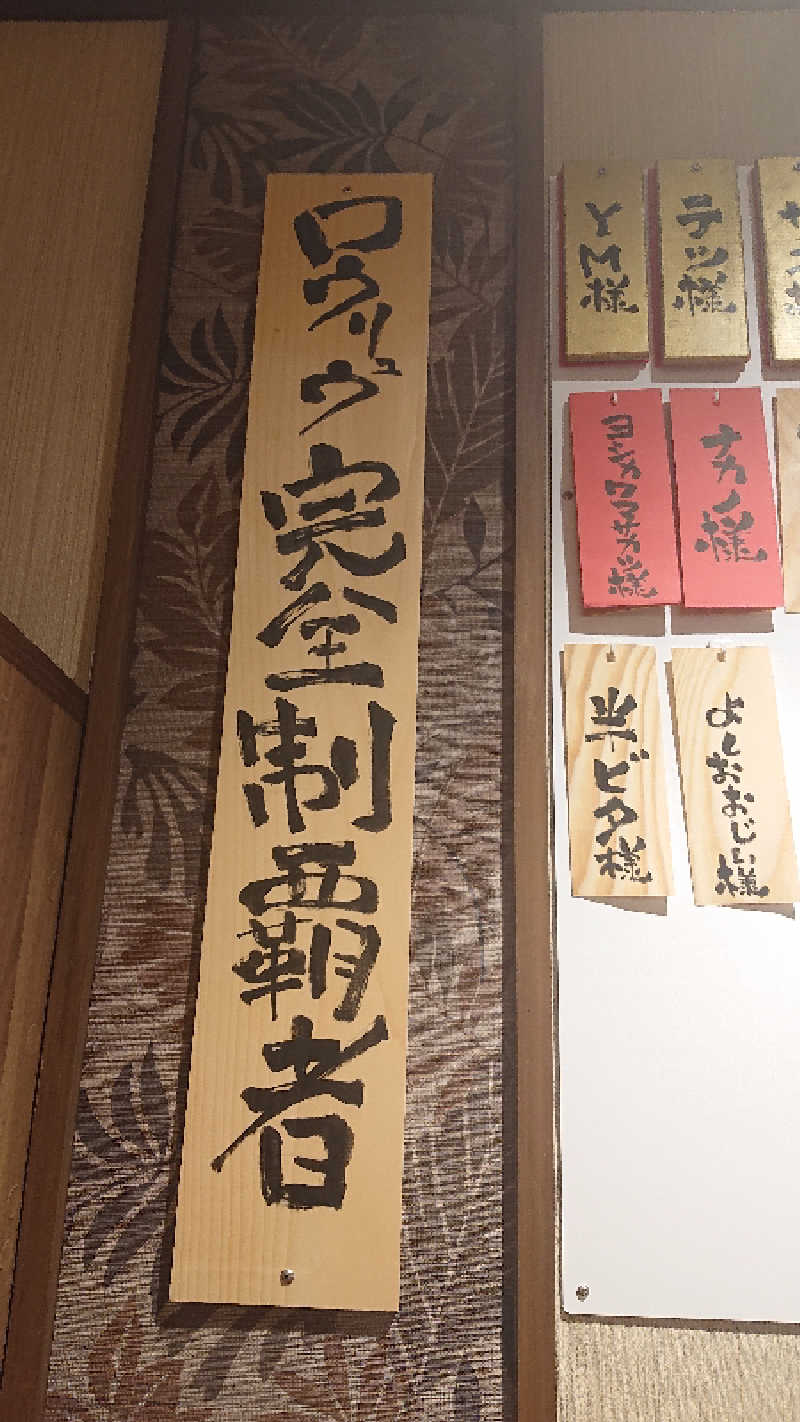 ロウリュウ完全制覇者
YM様
テツ様
ヨシカワマサカツ様
ナカノ様
半ビタ様
よしおおじい様